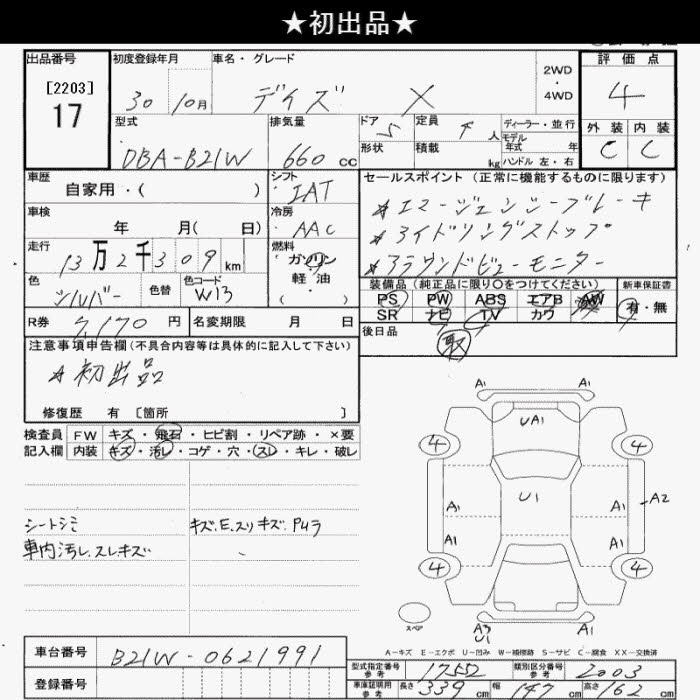 ★初出品★
出品番号
[2203]
17
初度登録年月
30 10月
車名・グレード
デイズ X
2WD
・
4WD
評価点
4
外装 内装
C C
型式
DBA-B21W
排気量
660 cc
ドア 5
形状
定員 4 人
積載 kg
ディーラー・並行
モデル年式 年
ハンドル 左・右
車歴
自家用・( )
シフト
IAT
車検
年 月( 日)
冷房
AAC
走行
13万2千309km
燃料
ガソリン
軽油
色
シルバー
色替
色コード
W13
R券 7,170円
名変期限 月 日
セールスポイント(正常に機能するものに限ります)
☆エマージェンシーブレーキ
☆アイドリングストップ
☆アラウンドビューモニター
装備品(純正品に限り〇をつけてください)
PS PW ABS エアB AW
SR ナビ TV カワ
新車保証書
有・無
後日品
取
注意事項申告欄(不具合内容等は具体的に記入して下さい)
☆初出品
修復歴 有 〔箇所 〕
検査員記入欄
FW キズ・飛石・ヒビ割・リペア跡・×要
内装 キズ・汚レ・コゲ・穴・スレ・キレ・破レ
シートシミ
車内汚レ.スレキズ
キズ.E.スリキズ.PUラ
A1 A1
UA1
4 4
U1
A1 A1 A2
A1 A1
4 4
スペア
A3
U1
A1
A-キズ E-エクボ U-凹み W-補修跡 S-サビ C-腐食 XX-交換済
車台番号
B21W-0621991
登録番号
型式指定番号
参考
17552
類別区分番号
参考
2003
車庫証明用
参考
長さ 339 cm
幅 147 cm
高さ 162 cm